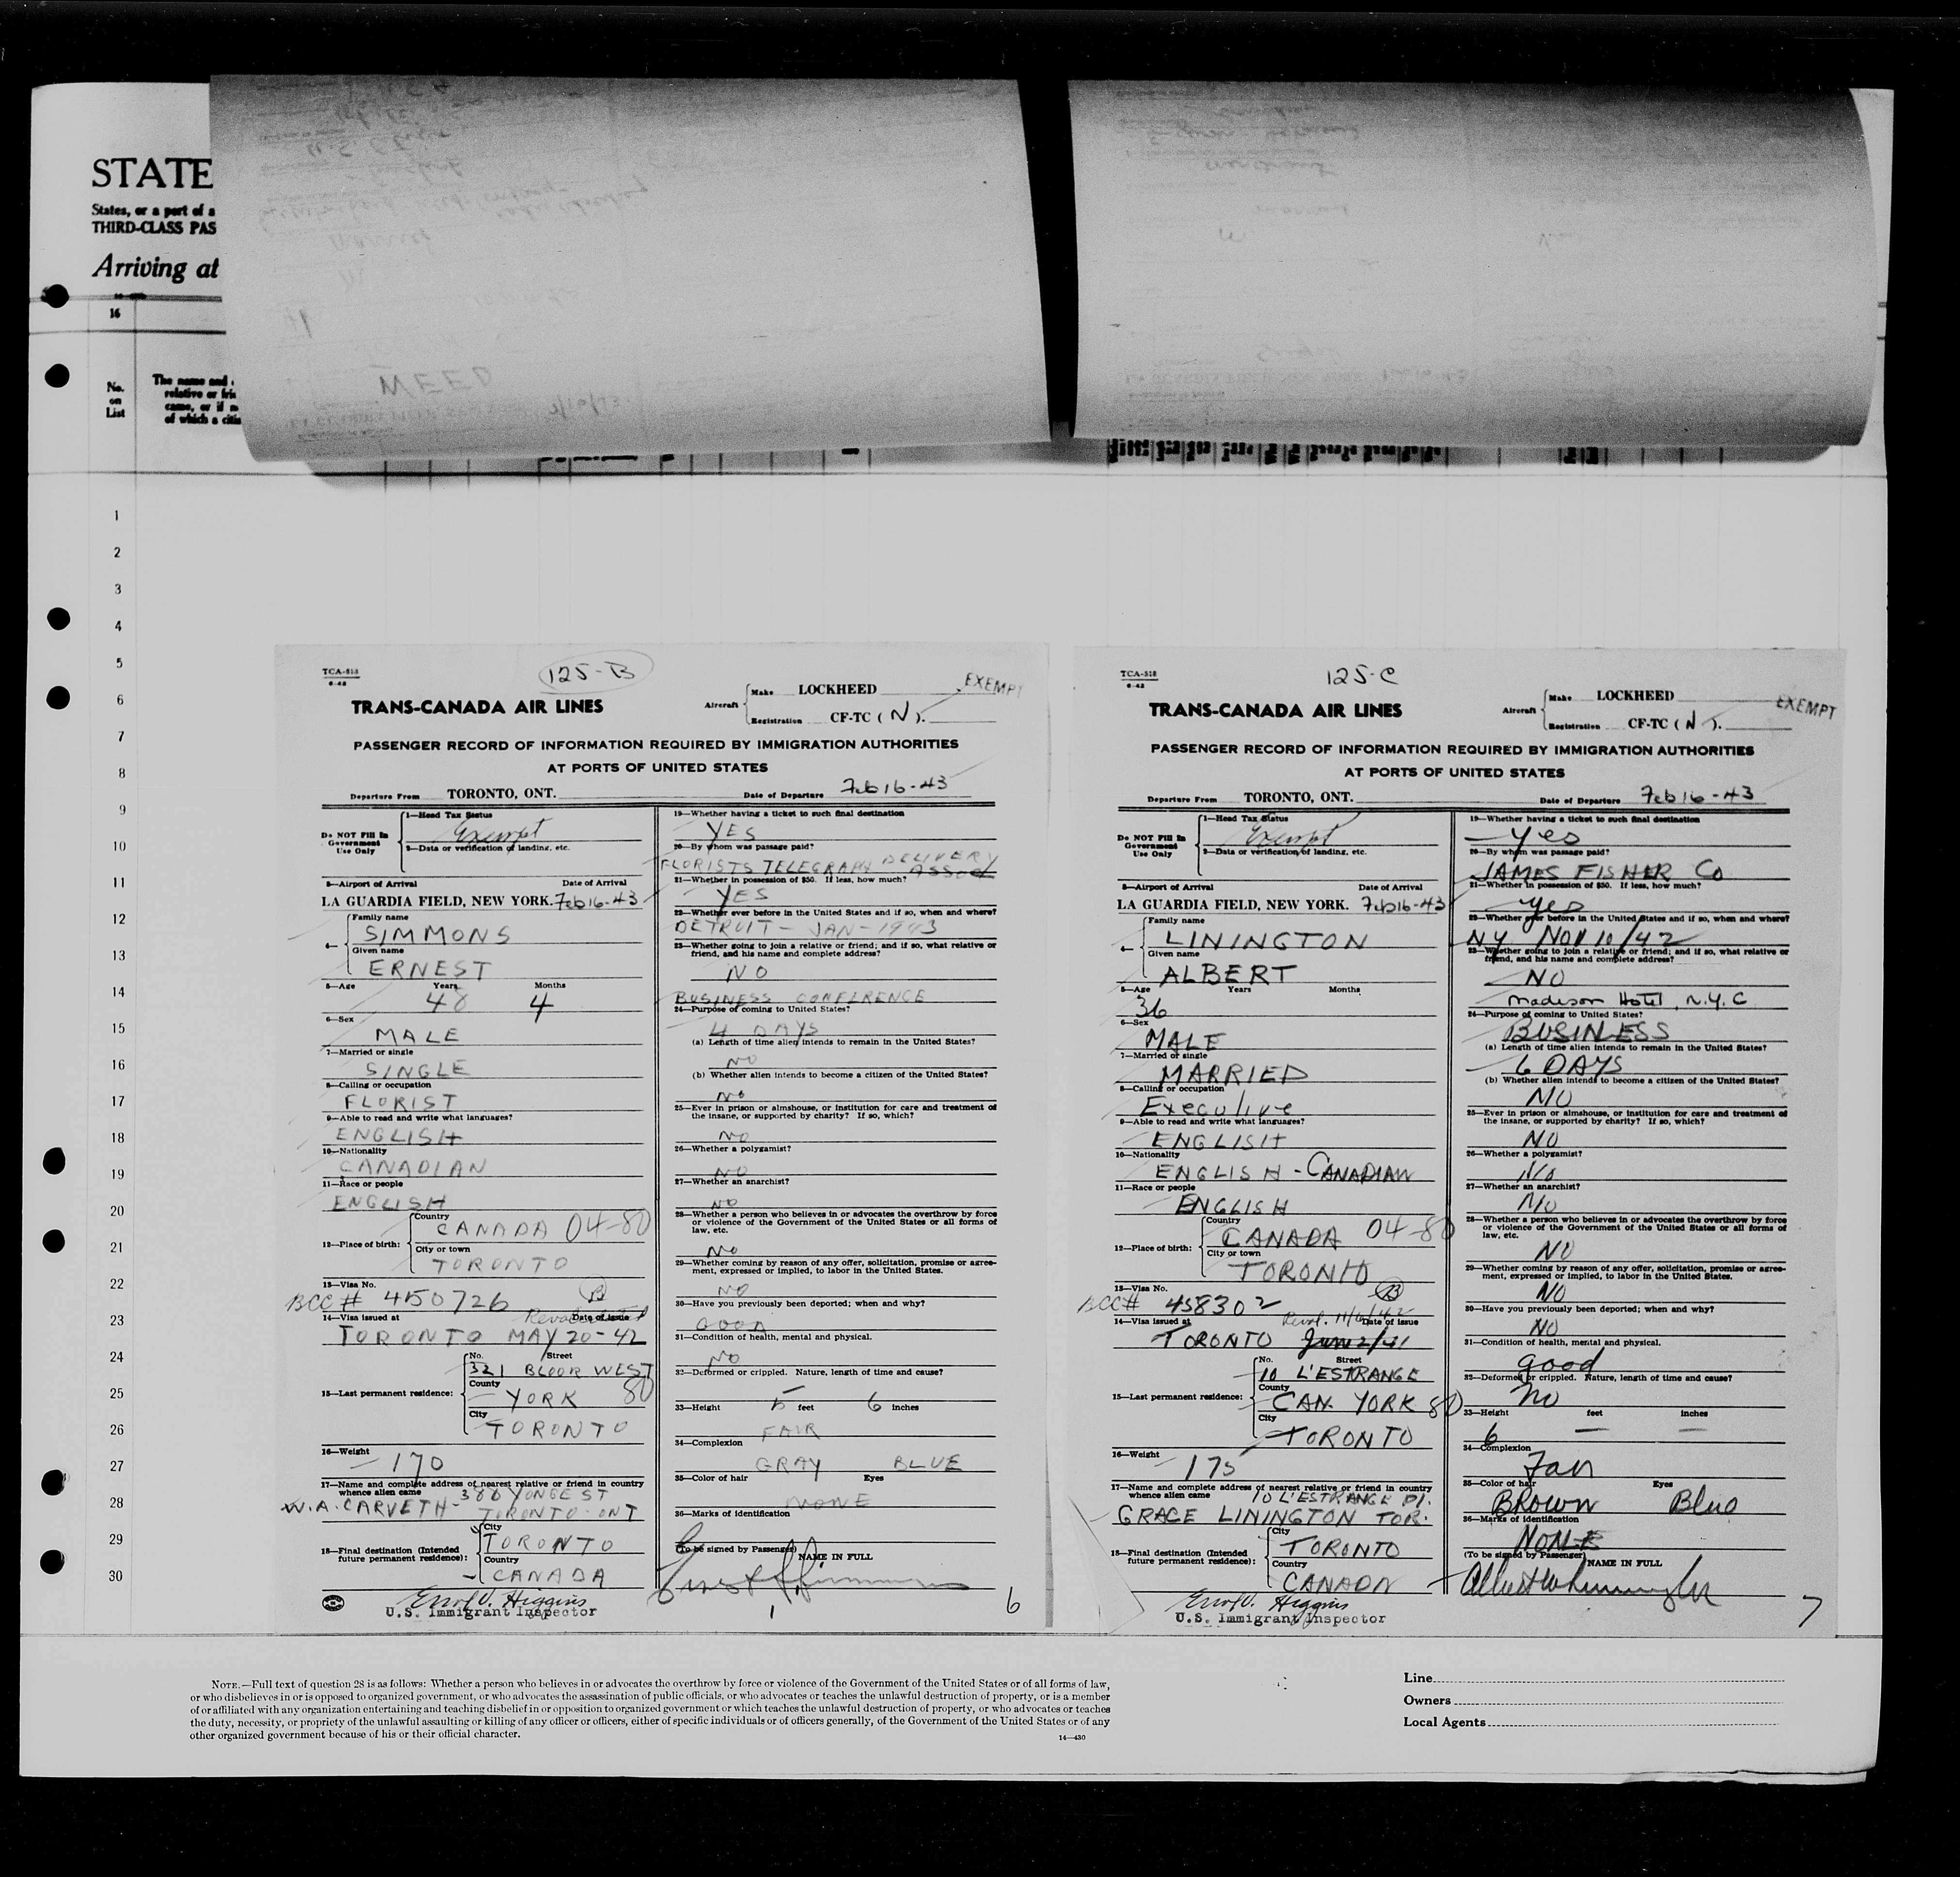 STATE
States, or a part of a
THIRD-CLASS PAS
Arriving at
16
No.
on
List
The name and
relative or frie
came, or if n
of which a citi
WEED
1
2
3
4
5
6
7
8
9
10
11
12
13
14
15
16
17
18
19
20
21
22
23
24
25
26
27
28
29
30
TCA-518
6-42
125-B
TRANS-CANADA AIR LINES
Aircraft
Make LOCKHEED
Registration CF-TC (N).
EXEMPT
PASSENGER RECORD OF INFORMATION REQUIRED BY IMMIGRATION AUTHORITIES
AT PORTS OF UNITED STATES
Departure From TORONTO, ONT.
Date of Departure Feb 16-43
Do NOT Fill In
Government
Use Only
1—Head Tax Status
Exempt
2—Data or verification of landing, etc.
3—Airport of Arrival Date of Arrival
LA GUARDIA FIELD, NEW YORK. Feb 16-43
4—
Family name
SIMMONS
Given name
ERNEST
5—Age Years Months
48 4
6—Sex
MALE
7—Married or single
SINGLE
8—Calling or occupation
FLORIST
9—Able to read and write what languages?
ENGLISH
10—Nationality
CANADIAN
11—Race or people
ENGLISH
12—Place of birth:
Country
CANADA 04-80
City or town
TORONTO
13—Visa No.
BCC # 4150726 B
14—Visa issued at Date of Issue
TORONTO MAY 20-42
15—Last permanent residence:
No. Street
321 BLOOR WEST
County
YORK 80
City
TORONTO
16—Weight
170
17—Name and complete address of nearest relative or friend in country
whence alien came 386 YONGE ST
W.A. CARVETH- TORONTO-ONT
18—Final destination (Intended
future permanent residence):
City
TORONTO
Country
CANADA
Errol V. Higgins
U.S. Immigrant Inspector
19—Whether having a ticket to such final destination
YES
20—By whom was passage paid?
FLORISTS TELEGRAPH DELIVERY
ASSOC
21—Whether in possession of $50. If less, how much?
YES
22—Whether ever before in the United States and if so, when and where?
DETROIT - JAN - 1943
23—Whether going to join a relative or friend; and if so, what relative or
friend, and his name and complete address?
NO
BUSINESS CONFERENCE
24—Purpose of coming to United States?
4 DAYS
(a) Length of time alien intends to remain in the United States?
NO
(b) Whether alien intends to become a citizen of the United States?
NO
25—Ever in prison or almshouse, or institution for care and treatment of
the insane, or supported by charity? If so, which?
NO
26—Whether a polygamist?
NO
27—Whether an anarchist?
NO
28—Whether a person who believes in or advocates the overthrow by force
or violence of the Government of the United States or all forms of
law, etc.
NO
29—Whether coming by reason of any offer, solicitation, promise or agree-
ment, expressed or implied, to labor in the United States.
NO
30—Have you previously been deported; when and why?
GOOD
31—Condition of health, mental and physical.
NO
32—Deformed or crippled. Nature, length of time and cause?
33—Height 5 feet 6 inches
FAIR
34—Complexion
GRAY BLUE
35—Color of hair Eyes
NONE
36—Marks of identification
(To be signed by Passenger)
NAME IN FULL
1
6
TCA-518
6-42
125-C
TRANS-CANADA AIR LINES
Aircraft
Make LOCKHEED
Registration CF-TC (N).
EXEMPT
PASSENGER RECORD OF INFORMATION REQUIRED BY IMMIGRATION AUTHORITIES
AT PORTS OF UNITED STATES
Departure From TORONTO, ONT.
Date of Departure Feb 16-43
Do NOT Fill In
Government
Use Only
1—Head Tax Status
Exempt
2—Data or verification of landing, etc.
3—Airport of Arrival Date of Arrival
LA GUARDIA FIELD, NEW YORK. Feb 16-43
4—
Family name
LININGTON
Given name
ALBERT
5—Age Years Months
36
6—Sex
MALE
7—Married or single
MARRIED
8—Calling or occupation
Executive
9—Able to read and write what languages?
ENGLISH
10—Nationality
ENGLISH - CANADIAN
11—Race or people
ENGLISH
12—Place of birth:
Country
CANADA 04-80
City or town
TORONTO
13—Visa No.
BCC# 458302 B
Reval. 11/6/42
14—Visa issued at Date of issue
TORONTO June 2/41
15—Last permanent residence:
No. Street
10 L'ESTRANGE
County
CAN. YORK 80
City
TORONTO
16—Weight
175
17—Name and complete address of nearest relative or friend in country
whence alien came 10 L'ESTRANGE Pl.
GRACE LININGTON TOR.
18—Final destination (Intended
future permanent residence):
City
TORONTO
Country
CANADA
Errol V. Higgins
U.S. Immigrant Inspector
19—Whether having a ticket to such final destination
yes
20—By whom was passage paid?
JAMES FISHER Co
21—Whether in possession of $50. If less, how much?
yes
22—Whether ever before in the United States and if so, when and where?
N.Y. NOV 10/42
23—Whether going to join a relative or friend; and if so, what relative or
friend, and his name and complete address?
NO
Madison Hotel, N.Y.C
24—Purpose of coming to United States?
BUSINESS
(a) Length of time alien intends to remain in the United States?
6 DAYS
(b) Whether alien intends to become a citizen of the United States?
NO
25—Ever in prison or almshouse, or institution for care and treatment of
the insane, or supported by charity? If so, which?
NO
26—Whether a polygamist?
No
27—Whether an anarchist?
NO
28—Whether a person who believes in or advocates the overthrow by force
or violence of the Government of the United States or all forms of
law, etc.
NO
29—Whether coming by reason of any offer, solicitation, promise or agree-
ment, expressed or implied, to labor in the United States.
NO
30—Have you previously been deported; when and why?
NO
31—Condition of health, mental and physical.
good
32—Deformed or crippled. Nature, length of time and cause?
no
33—Height feet inches
6 — —
34—Complexion
Fair
35—Color of hair Eyes
BROWN Blue
36—Marks of identification
NONE
(To be signed by Passenger)
NAME IN FULL
7
NOTE.—Full text of question 28 is as follows: Whether a person who believes in or advocates the overthrow by force or violence of the Government of the United States or of all forms of law,
or who disbelieves in or is opposed to organized government, or who advocates the assassination of public officials, or who advocates or teaches the unlawful destruction of property, or is a member
of or affiliated with any organization entertaining and teaching disbelief in or opposition to organized government or which teaches the unlawful destruction of property, or who advocates or teaches
the duty, necessity, or propriety of the unlawful assaulting or killing of any officer or officers, either of specific individuals or of officers generally, of the Government of the United States or of any
other organized government because of his or their official character.
14—430
Line
Owners
Local Agents